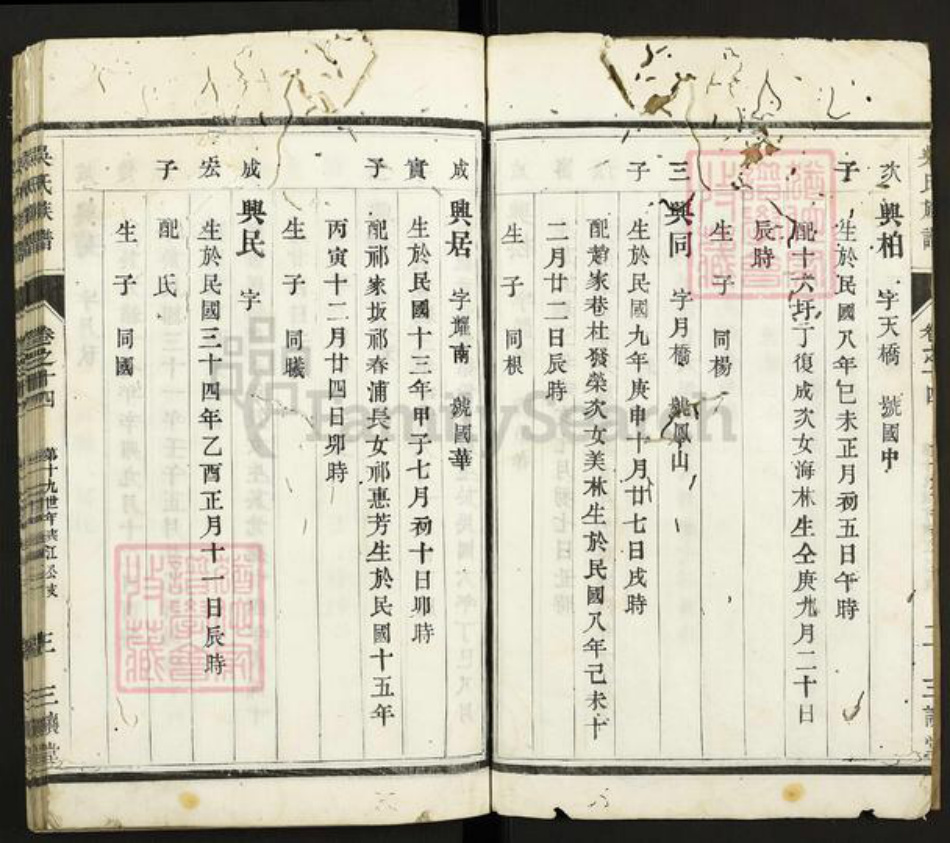 次 興柏 字天橋 號國中
子 生於民國八年巳未正月初五日午時
配十六圩丁復成次女海林生仝庚九月二十日
辰時
生子 同楊
三 興同 字月橋 號鳳山
子 生於民國九年庚申十月廿七日戌時
配趙家巷杜發榮次女美林生於民國八年己未十
二月廿二日辰時
生子 同根
成 興居 字耀南 號國華
實 生於民國十三年甲子七月初十日卯時
子 配祁家坂祁春浦長女祁惠芳生於民國十五年
丙寅十二月廿四日卯時
生子 同曦
成 興民 字
宏 生於民國三十四年乙酉正月十一日辰時
子 配 氏
生子 同國
吳氏族譜 卷之十四 第十九世 三 三讓堂
FamilySearch